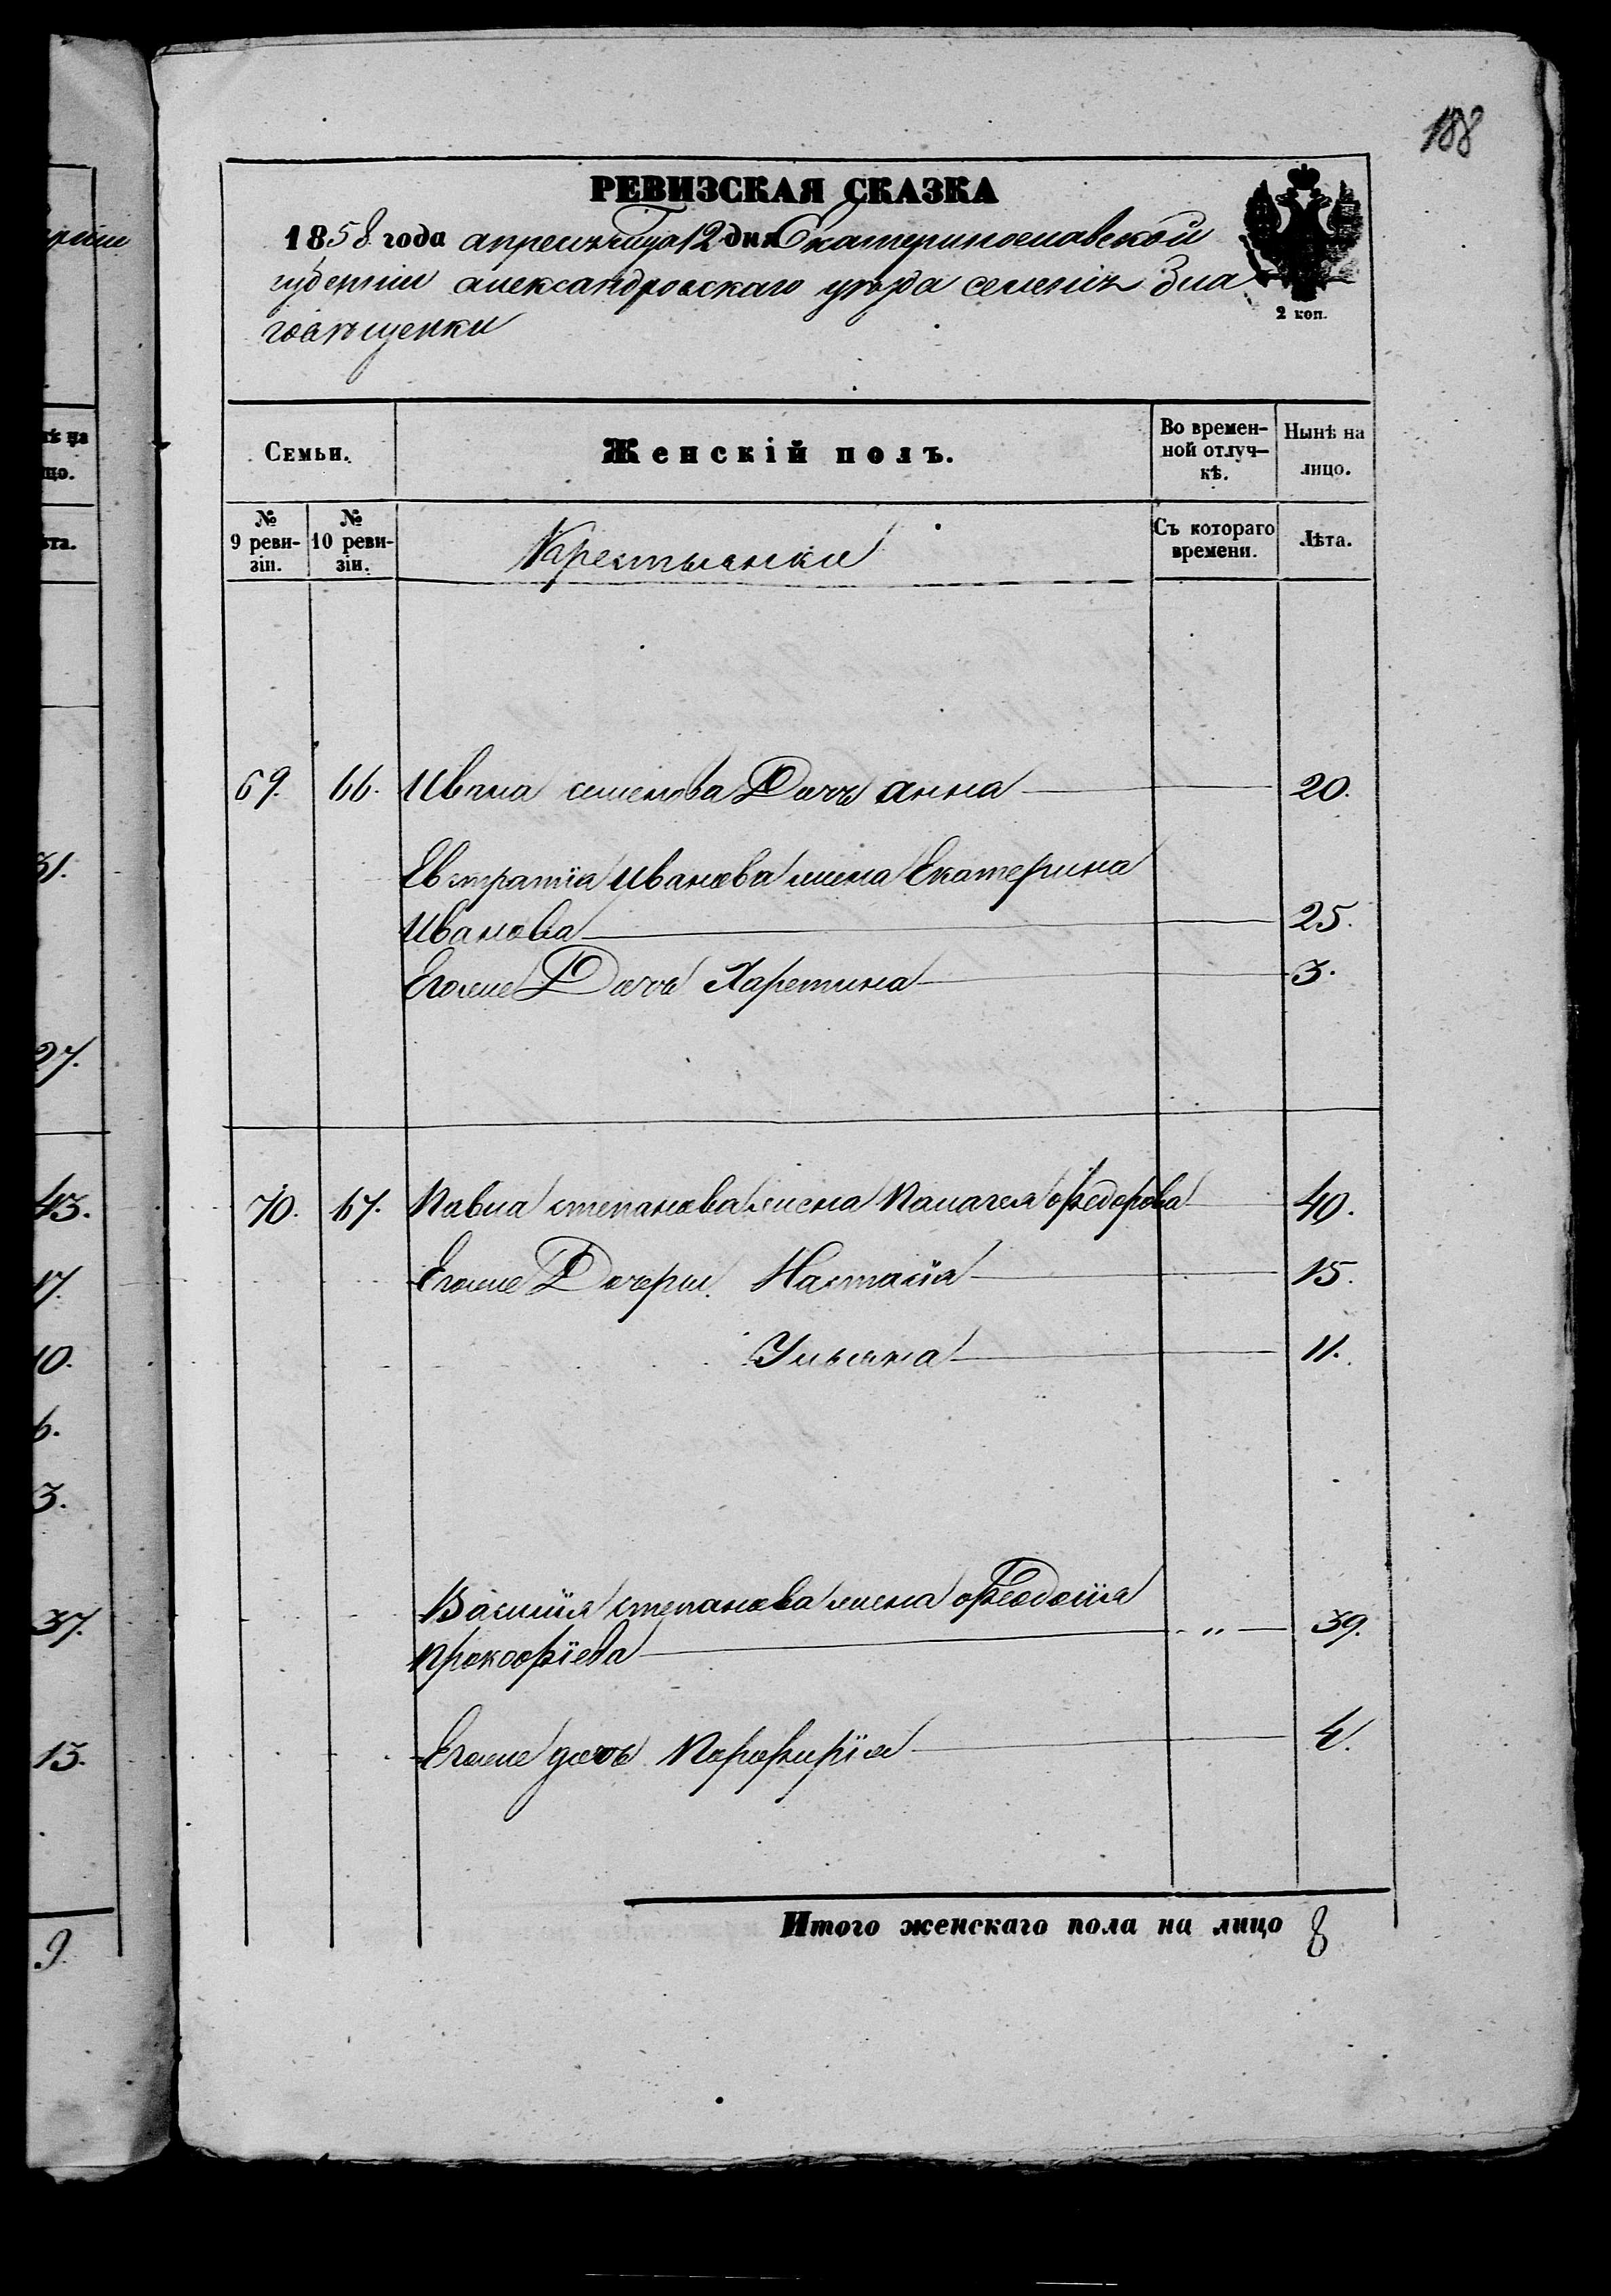 188
РЕВИЗСКАЯ СКАЗКА
1858 года апреля м͠ца 12 дня Екатеринославской
губернии александровскаго уѣзда селенія Бла
говѣщенки
2 коп.
Семьи. Женскій полъ. Во времен- Нынѣ на
ной отлуч- лицо.
кѣ.
№ № Съ котораго Лѣта.
9 реви- 10 реви- времени.
зіи. зіи.
Крестьянки
69. 66. Ивана семенова Дочь анна 20.
Евстратіа Иванова жена Екатерина
Иванова 25.
Егоже Дочь Харетина 3.
70. 67. Павла степанова жена Палагея офедорова 40.
Егоже Дочери Настасія 15.
Ульяна 11.
Василія степанова жена офеодосія
Прокофіева " 39.
Егоже дочь Порфирія 4.
Итого женскаго пола на лицо 8
31.
27.
43.
17.
10.
6.
3.
37.
13.
9.